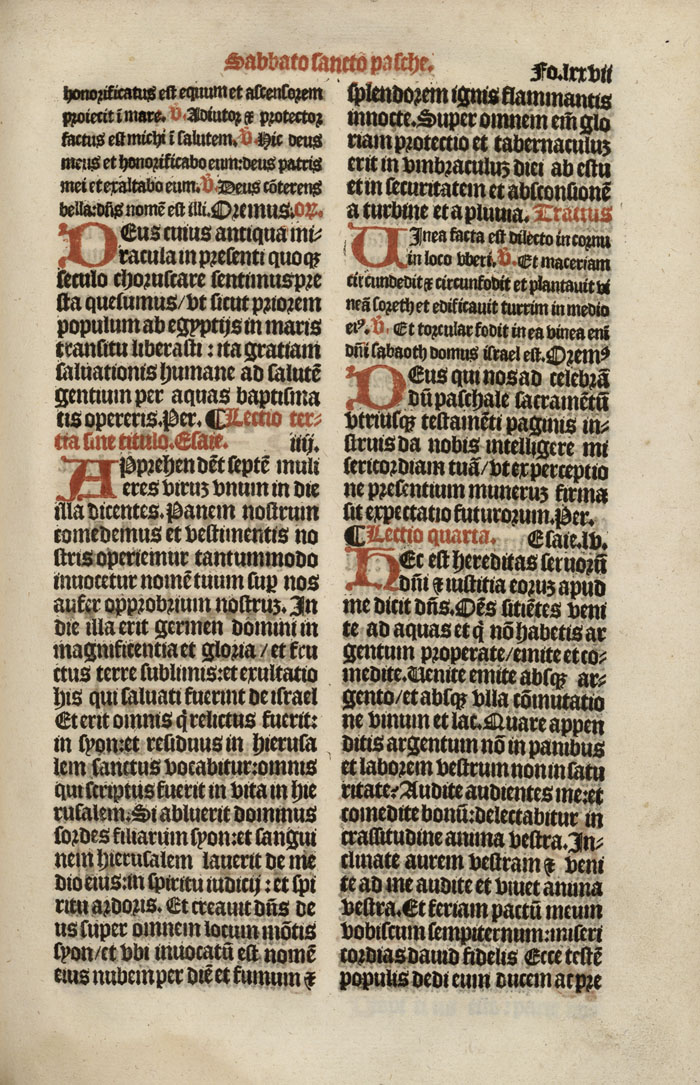 Sabbato sancto pasche.
Fo.lxxvii
honorificatus est equum et ascensorem
proiecit ī mare. ℣. Adiutor ⁊ protector
factus est michi ī salutem. ℣. Hic deus
meus et honorificabo eum:deus patris
mei et exaltabo eum. ℣. Deus cōterens
bella:dn̄s nomē est illi. Oremus. or̄.
DEus cuius antiqua mi-
racula in presenti quoqꝫ
seculo choruscare sentimus:pre
sta quesumus/vt sicut priorem
populum ab egyptijs in maris
transitu liberasti : ita gratiam
saluationis humane ad salutē
gentium per aquas baptisma
tis opereris. Per. ¶ Lectio ter-
tia sine titulo. Esaie. iiij.
APprehendēt septē muli
eres viruꝫ vnum in die
illa dicentes. Panem nostrum
comedemus et vestimentis no
stris operiemur tantummodo
inuocetur nomē tuum suꝑ nos
aufer opprobrium nostruꝫ. In
die illa erit germen domini in
magnificentia et gloria / et fru
ctus terre sublimis:et exultatio
his qui saluati fuerint de israel
Et erit omnis q̄ relictus fuerit:
in syon:et residuus in hierusa
lem sanctus vocabitur:omnis
qui scriptus fuerit in vita in hie
rusalem. Si abluerit dominus
sordes filiarum syon:et sangui
nem hierusalem lauerit de me
dio eius:in spiritu iudicij : et spi
ritu ardoris. Et creauit dn̄s de
us super omnem locum mōtis
syon/et vbi inuocatū est nomē
eius nubem per diē et fumum ⁊
splendorem ignis flammantis
in nocte. Super omnem em̄ glo
riam protectio et tabernaculuꝫ
erit in vmbraculuꝫ diei ab estu
et in securitatem et absconsionē
a turbine et a pluuia. Tractus
UInea facta est dilecto in cornu
in loco vberi. ℣. Et maceriam
circundedit ⁊ circunfodit et plantauit vi
neā soreth et edificauit turrim in medio
eiꝰ. ℣. Et torcular fodit in ea vinea em̄
dn̄i sabaoth domus israel est. Oremꝰ
DEus qui nos ad celebrā
dū paschale sacramētū
vtriusqꝫ testamēti paginis in-
struis da nobis intelligere mi
sericordiam tuā/vt ex perceptio
ne presentium muneruꝫ firma
sit expectatio futurorum. Per.
¶ Lectio quarta. Esaie. lv.
HEc est hereditas seruorū
dn̄i ⁊ iustitia eoruꝫ apud
me dicit dn̄s. Om̄s sitiētes veni
te ad aquas et q̄ nō habetis ar
gentum properate/emite et co-
medite. Uenite emite absqꝫ ar-
gento/et absqꝫ vlla cōmutatio
ne vinum et lac. Quare appen
ditis argentum nō in panibus
et laborem vestrum non in satu
ritate? Audite audientes me:et
comedite bonū:delectabitur in
crassitudine anima vestra. In-
clinate aurem vestram ⁊ veni
te ad me audite et viuet anima
vestra. Et feriam pactū meum
vobiscum sempiternum:miseri
cordias dauid fidelis Ecce testē
populis dedi eum ducem ac pre